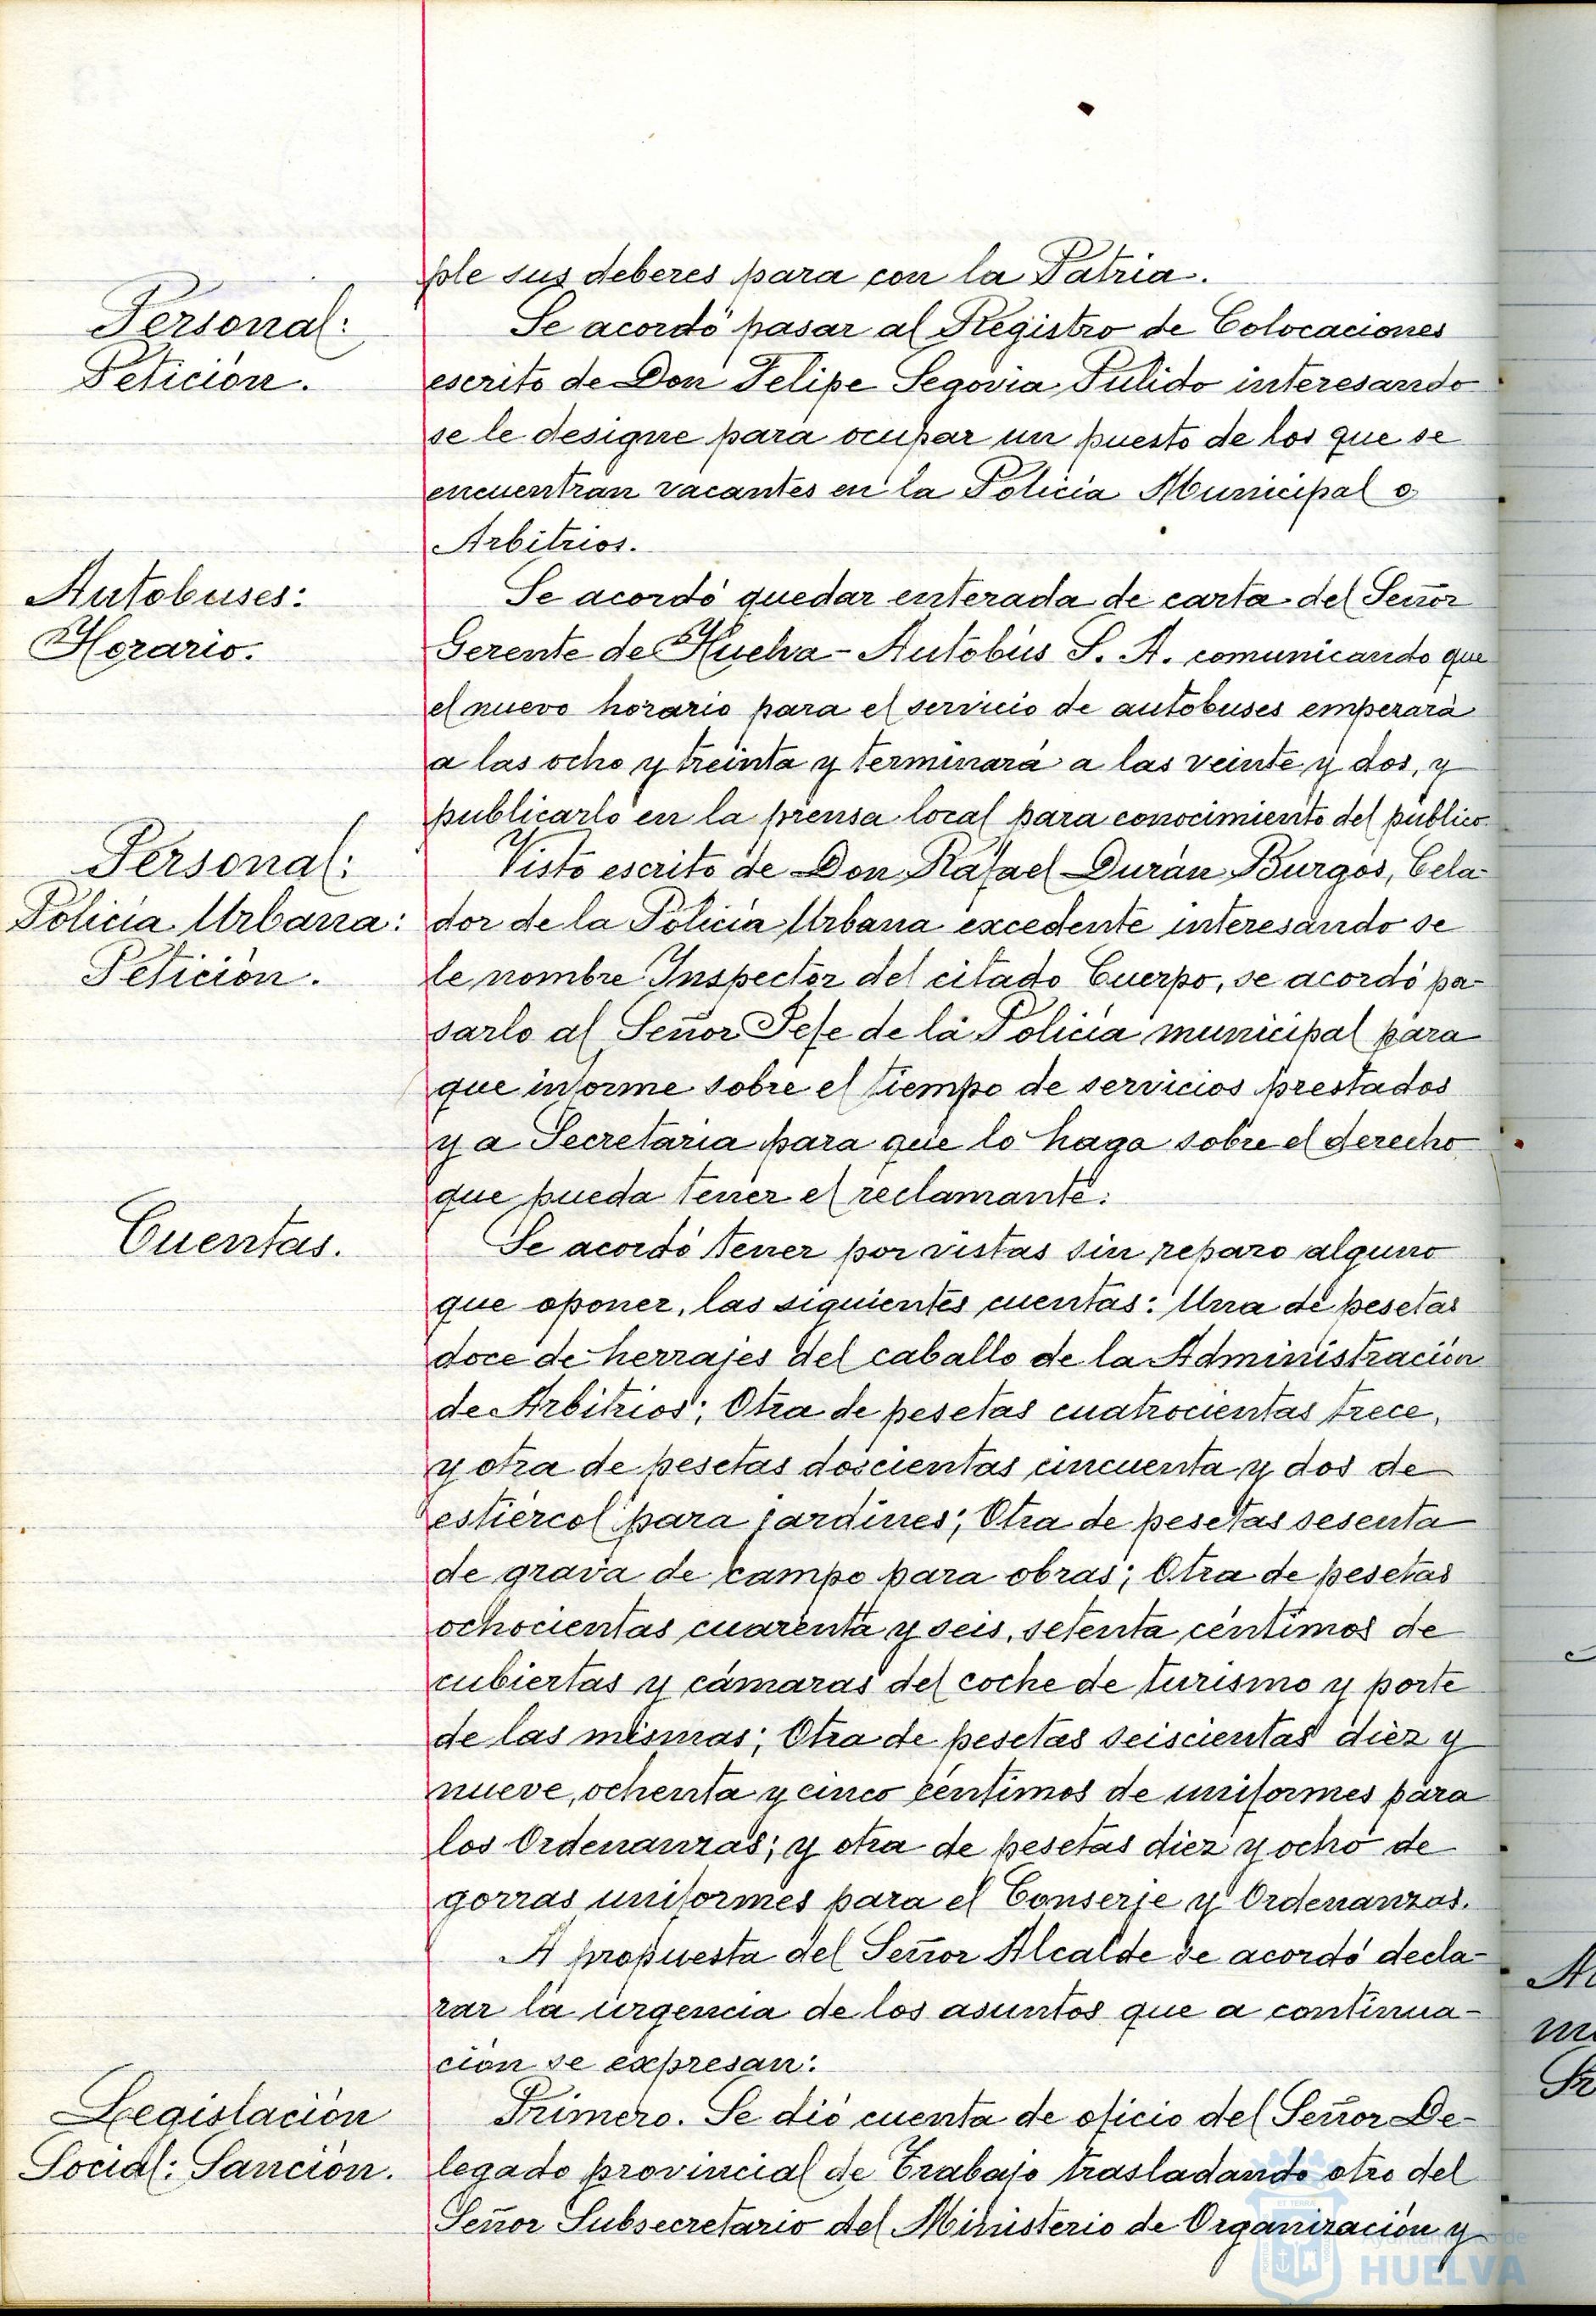 ple sus deberes para con la Patria.
Personal:
Petición.
Se acordó pasar al Registro de Colocaciones
escrito de Don Felipe Segovia Pulido interesando
se le designe para ocupar un puesto de los que se
encuentran vacantes en la Policia Municipal o
Arbitrios.
Autobuses:
Horario.
Se acordó quedar enterada de carta del Señor
Gerente de Huelva-Autobús S. A. comunicando que
el nuevo horario para el servicio de autobuses emperará
a las ocho y treinta y terminará a las veinte y dos, y
publicarlo en la prensa local para conocimiento del público.
Personal:
Policia Urbana:
Petición.
Visto escrito de Don Rafael Durán Burgos, Cela-
dor de la Policia Urbana excedente interesando se
le nombre Inspector del citado Cuerpo, se acordó pa-
sarlo al Señor Jefe de la Policia municipal para
que informe sobre el tiempo de servicios prestados
y a Secretaria para que lo haga sobre el derecho
que pueda tener el reclamante.
Cuentas.
Se acordó tener por vistas sin reparo alguno
que oponer, las siguientes cuentas: Una de pesetas
doce de herrajes del caballo de la Administración
de Arbitrios; Otra de pesetas cuatrocientas trece,
y otra de pesetas doscientas cincuenta y dos de
estiércol para jardines; Otra de pesetas sesenta
de grava de campo para obras; Otra de pesetas
ochocientas cuarenta y seis, setenta céntimos de
cubiertas y cámaras del coche de turismo y porte
de las mismas; Otra de pesetas seiscientas diez y
nueve, ochenta y cinco céntimos de uniformes para
los Ordenanzas; y otra de pesetas diez y ocho de
gorras uniformes para el Conserje y Ordenanzas.
A propuesta del Señor Alcalde se acordó decla-
rar la urgencia de los asuntos que a continua-
ción se expresan:
Legislación
Social: Sanción.
Primero. Se dió cuenta de oficio del Señor De-
legado provincial de Trabajo trasladando otro del
Señor Subsecretario del Ministerio de Organización y
Ayuntamiento de
HUELVA